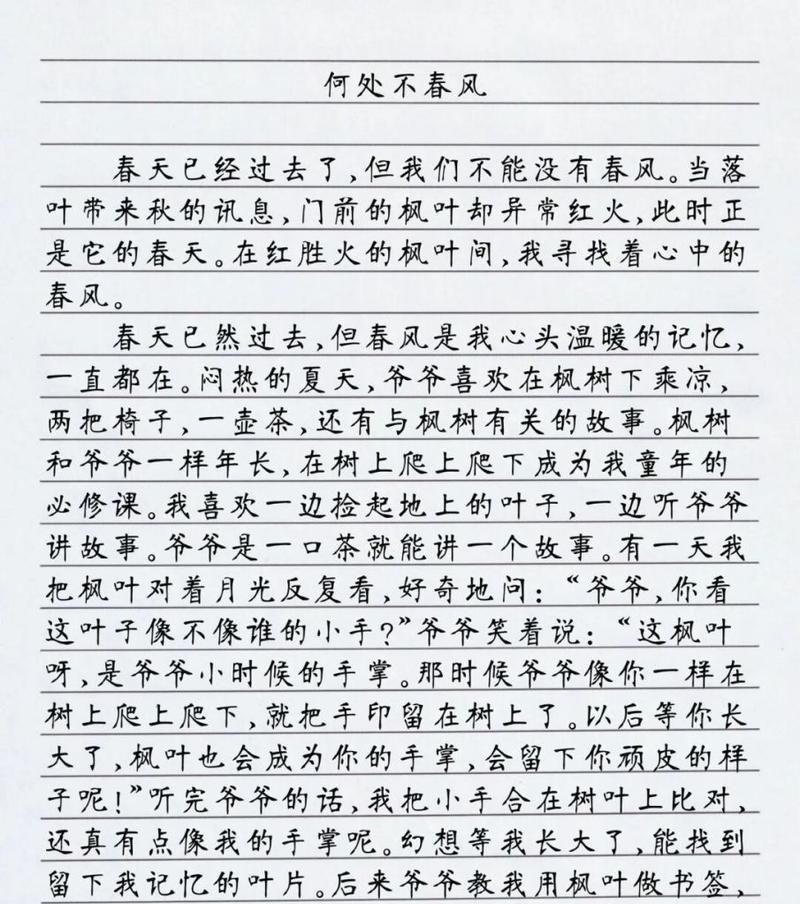 何处不春风
春天已经过去了,但我们不能没有春风。当落
叶带来秋的讯息,门前的枫叶却异常红火,此时正
是它的春天。在红胜火的枫叶间,我寻找着心中的
春风。
春天已然过去,但春风是我心头温暖的记忆,
一直都在。闷热的夏天,爷爷喜欢在枫树下乘凉,
两把椅子,一壶茶,还有与枫树有关的故事。枫树
和爷爷一样年长,在树上爬上爬下成为我童年的
必修课。我喜欢一边捡起地上的叶子,一边听爷爷
讲故事。爷爷是一口茶就能讲一个故事。有一天我
把枫叶对着月光反复看,好奇地问:“爷爷,你看
这叶子像不像谁的小手?”爷爷笑着说:“这枫叶
呀,是爷爷小时候的手掌。那时候爷爷像你一样在
树上爬上爬下,就把手印留在树上了。以后等你长
大了,枫叶也会成为你的手掌,会留下你顽皮的样
子呢!”听完爷爷的话,我把小手合在树叶上比对,
还真有点像我的手掌呢。幻想等我长大了,能找到
留下我记忆的叶片。后来爷爷教我用枫叶做书签,